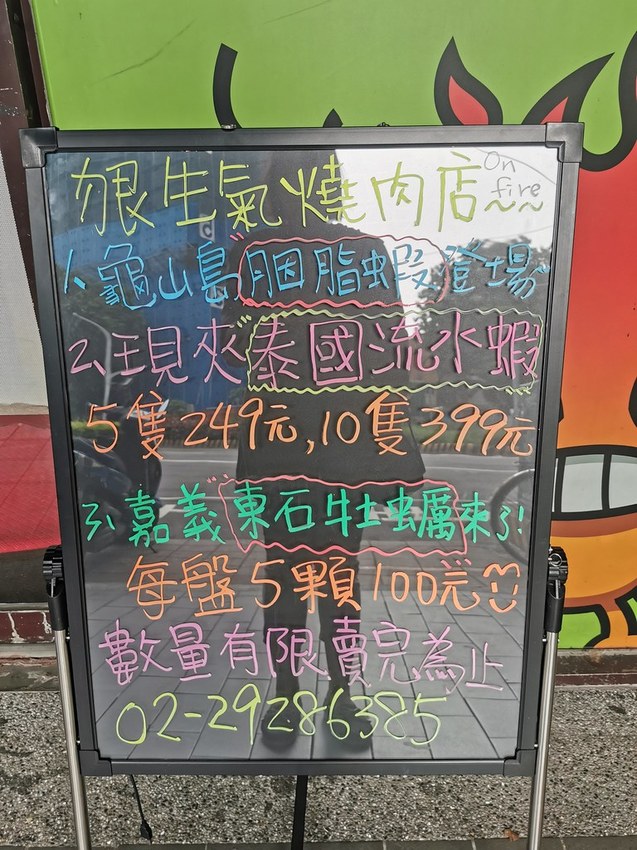 狠生氣燒肉店 On fire~~
1、龜山島胭脂蝦登場
2、現夾泰國流水蝦
5隻249元,10隻399元
3、嘉義東石牡蠣來了!
每盤5顆100元
數量有限賣完為止
02-29286385